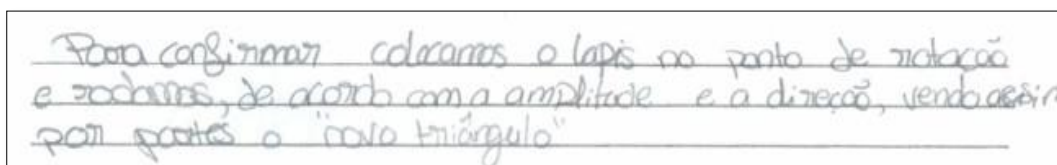 Para confirmar colocamos o lapis no ponto de rotação
e rodamos, de acordo com a amplitude e a direção, vendo assim
por partes o "novo triângulo"